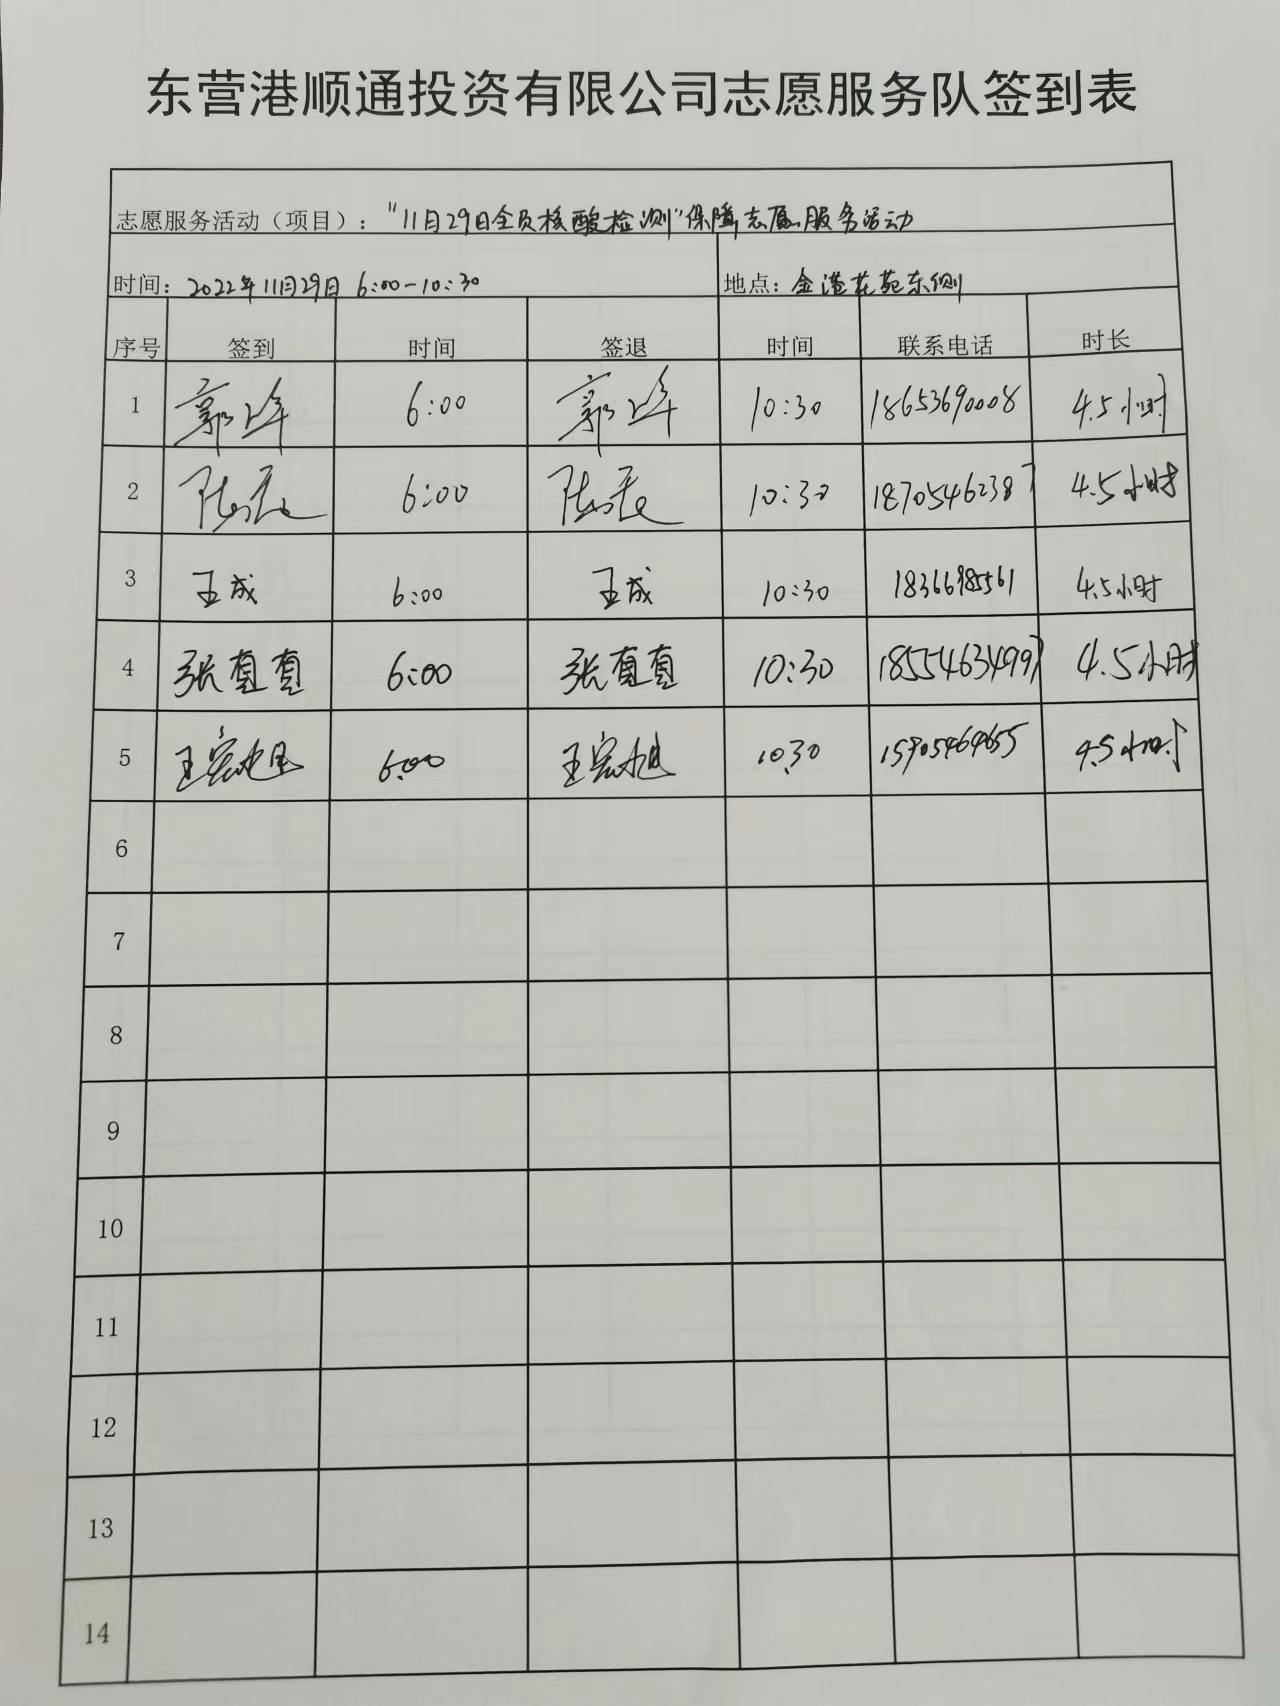 东营港顺通投资有限公司志愿服务队签到表
志愿服务活动（项目）：“11月29日全员核酸检测”保障志愿服务活动
时间：2022年11月29日 6:00-10:30 地点：金港花苑东侧
序号 签到 时间 签退 时间 联系电话 时长
1 郭峰 6:00 郭峰 10:30 18653690008 4.5小时
2 陈辰 6:00 陈辰 10:30 18705462387 4.5小时
3 王成 6:00 王成 10:30 18366985561 4.5小时
4 张直直 6:00 张直直 10:30 18554634997 4.5小时
5 王宏旭 6:00 王宏旭 10:30 15905464655 4.5小时
6
7
8
9
10
11
12
13
14